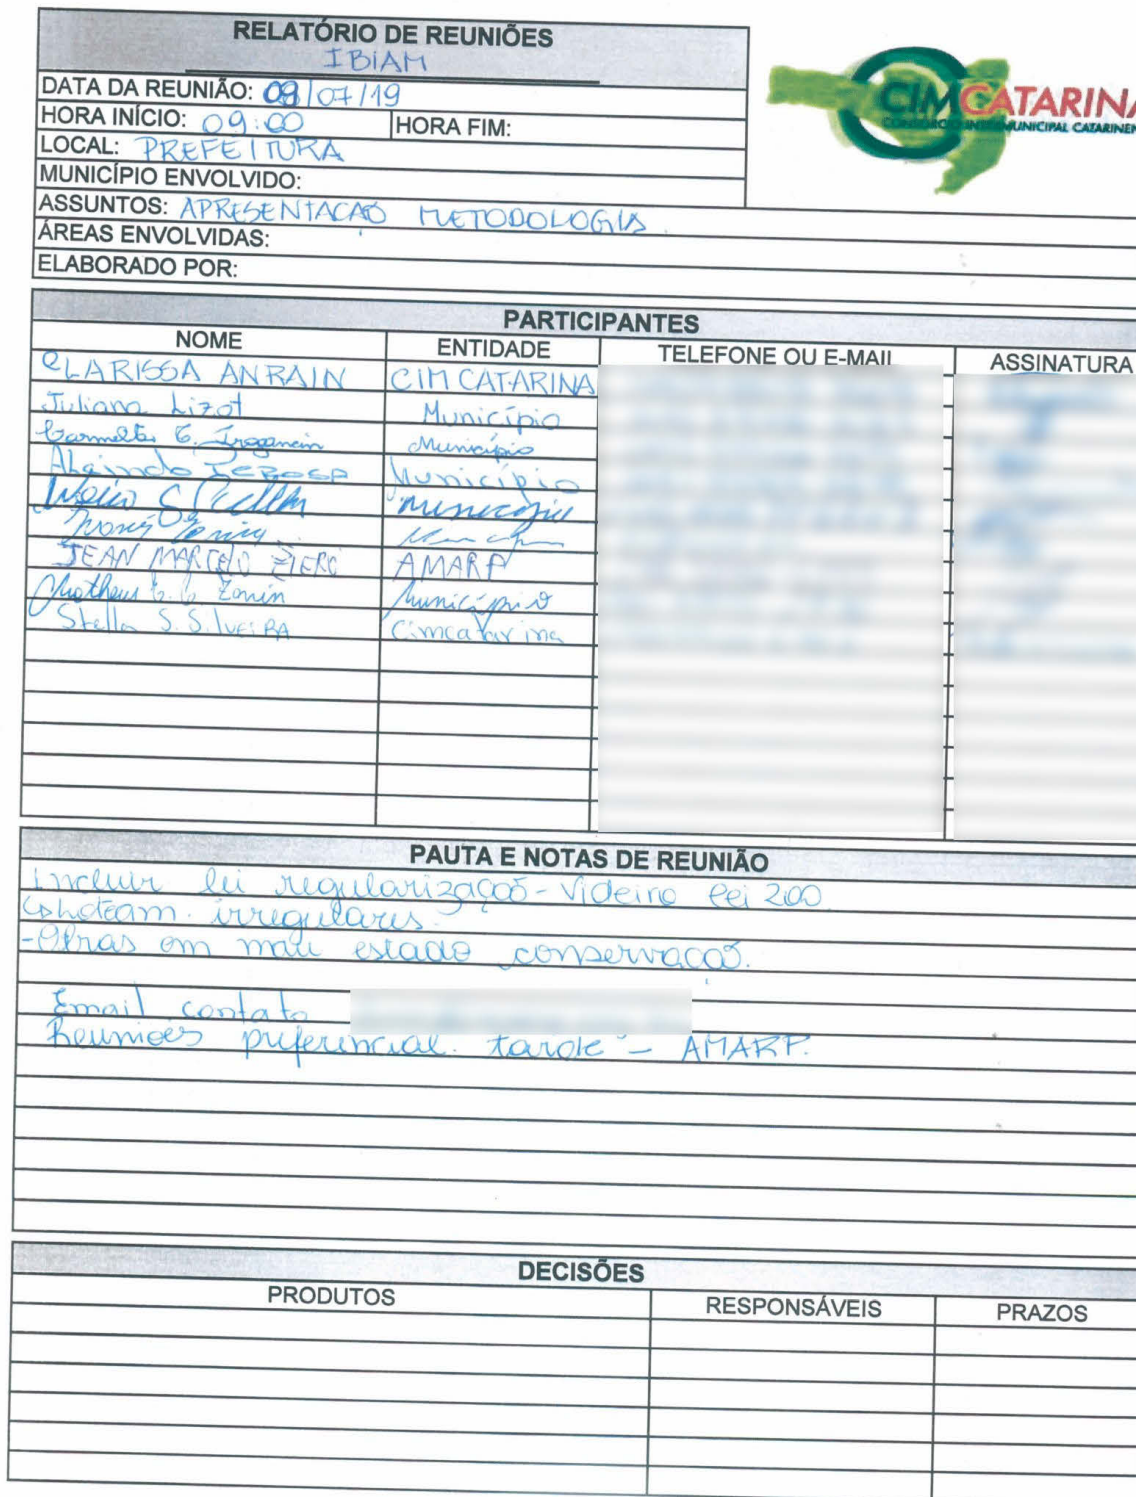 RELATÓRIO DE REUNIÕES
IBIAM
DATA DA REUNIÃO: 09/07/19
HORA INÍCIO: 09:00 HORA FIM:
LOCAL: PREFEITURA
MUNICÍPIO ENVOLVIDO:
ASSUNTOS: APRESENTAÇÃO METODOLOGIA.
ÁREAS ENVOLVIDAS:
ELABORADO POR:
CIMCATARINA
PARTICIPANTES
NOME ENTIDADE TELEFONE OU E-MAIL ASSINATURA
CLARISSA ANRAIN CIM CATARINA
Juliana Lizot Município
Município
Município
Município
JEAN MARCELO AMARP
Matheus Zonin Município
Stella S. SILVEIRA Cimcatarina
PAUTA E NOTAS DE REUNIÃO
Incluir lei regularização - Videira lei 200
↳ loteam. irregulares.
- Obras em mau estado conservação.
Email contato
Reuniões preferencial. tarde - AMARP.
DECISÕES
PRODUTOS RESPONSÁVEIS PRAZOS